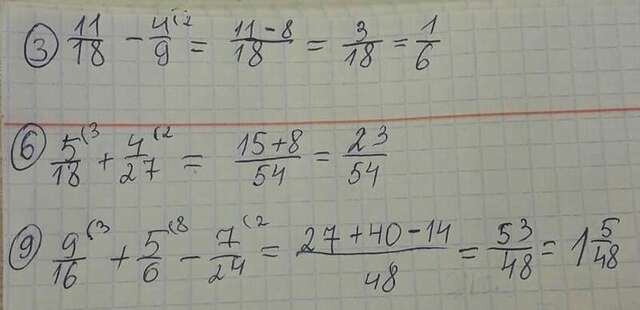 ③ 11/18 - 4/9 (2 = 11-8/18 = 3/18 = 1/6
⑥ 5/18 (3 + 4/27 (2 = 15+8/54 = 23/54
⑨ 9/16 (3 + 5/6 (8 - 7/24 (2 = 27+40-14/48 = 53/48 = 1 5/48